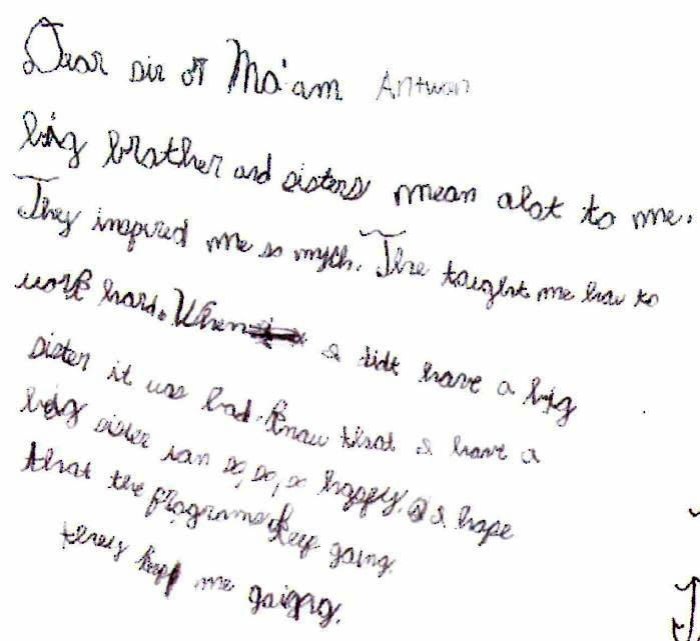 Dear sir or Ma'am Antwan
big brother and sisters mean alot to me.
They inspired me so myth. The taught me how to
work hard. When I didt have a big
sister it was bad. Know that I have a
bdig sister ian so, so, so happy. I hope
that the programe keep going.
they kepp me goigng.